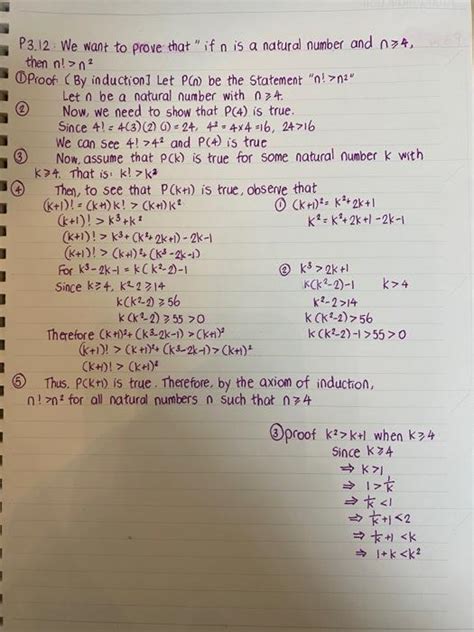 P3.12: We want to prove that "if n is a natural number and n≥4,
then n!>n²
① Proof: (By induction] Let P(n) be the statement "n!>n²"
Let n be a natural number with n≥4.
② Now, we need to show that P(4) is true.
Since 4! = 4(3)(2)(1)=24, 4²=4x4=16, 24>16
We can see 4!>4² and P(4) is true
③ Now, assume that P(k) is true for some natural number k with
k≥4. That is: k!>k²
④ Then, to see that P(k+1) is true, observe that
(k+1)! = (k+1)k! > (k+1)k²
(k+1)! > k³+k²
(k+1)! > k³+(k²+2k+1)-2k-1
(k+1)! > (k+1)²+(k³-2k-1)
For k³-2k-1 = k(k²-2)-1
Since k≥4, k²-2≥14
k(k²-2) ≥ 56
k(k²-2) ≥ 55 > 0
① (k+1)² = k²+2k+1
k² = k²+2k+1-2k-1
② k³ > 2k+1
k(k²-2)-1 k>4
k²-2>14
k(k²-2)>56
k(k²-2)-1>55>0
Therefore (k+1)²+(k³-2k-1) > (k+1)²
(k+1)! > (k+1)²+(k³-2k-1) > (k+1)²
(k+1)! > (k+1)²
⑤ Thus, P(k+1) is true. Therefore, by the axiom of induction,
n!>n² for all natural numbers n such that n≥4
③ proof k²>k+1 when k≥4
Since k≥4
⇒ k>1
⇒ 1>1/k
⇒ 1/k<1
⇒ 1/k+1<2
⇒ 1/k+1<k
⇒ 1+k<k²